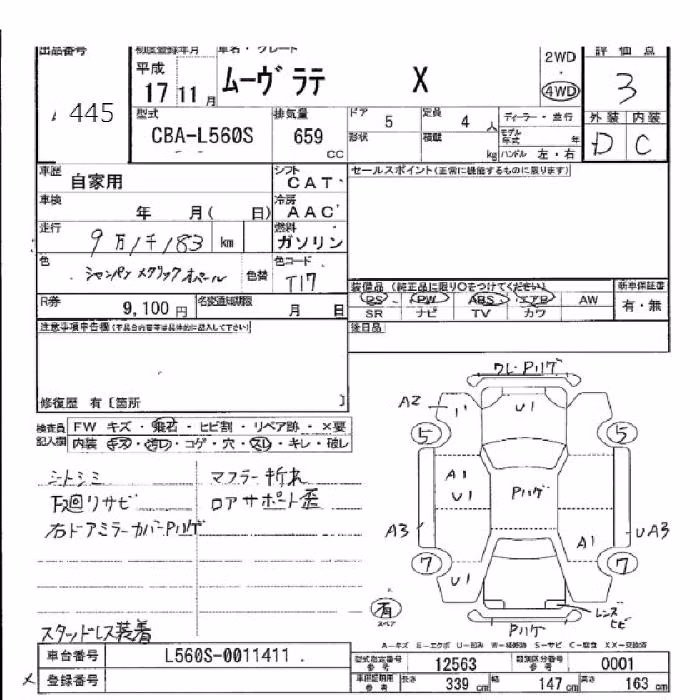 出品番号 初度登録年月 車名・グレード 2WD 評価点
平成 17 11月 ムーヴ ラテ X 4WD 3
445 型式 排気量 ドア 5 定員 4 人 ディーラー・並行 外装 内装
CBA-L560S 659 cc 形状 積載 kg モデル年式 年 D C
ハンドル 左・右
車歴 自家用 シフト CAT セールスポイント(正常に機能するものに限ります)
車検 年 月( 日) 冷房 AAC
走行 9万1千183 km 燃料 ガソリン
色 シャンパン メタリック オパール 色替 色コード T17
装備品 (純正品に限り○をつけてください) 新車保証書
R券 9,100円 名変通知期限 月 日 PS PW ABS エアB AW 有・無
SR ナビ TV カワ
注意事項申告欄(不具合内容等は具体的に記入して下さい) 後日品
修復歴 有〔箇所 〕
検査員 FW キズ・飛石・ヒビ割・リペア跡・×要
記入欄 内装 キズ・汚れ・コゲ・穴・スレ・キレ・破レ
シートシミ マフラー折れ
下廻りサビ ロアサポート歪
右ドアミラーカバーPハゲ
スタッドレス装着
ワレ・Pハゲ
A2 U1
5 5
A1
U1 Pハゲ
A3 A1 UA3
7 7
U1
有 レンズ
スペア ヒビ
Pハゲ
A-キズ E-エクボ U-凹み W-補修跡 S-サビ C-腐食 XX-交換済
車台番号 L560S-0011411 型式指定番号 参考 12563 類別区分番号 参考 0001
登録番号 車検証明用 参考 長さ 339 cm 幅 147 cm 高さ 163 cm